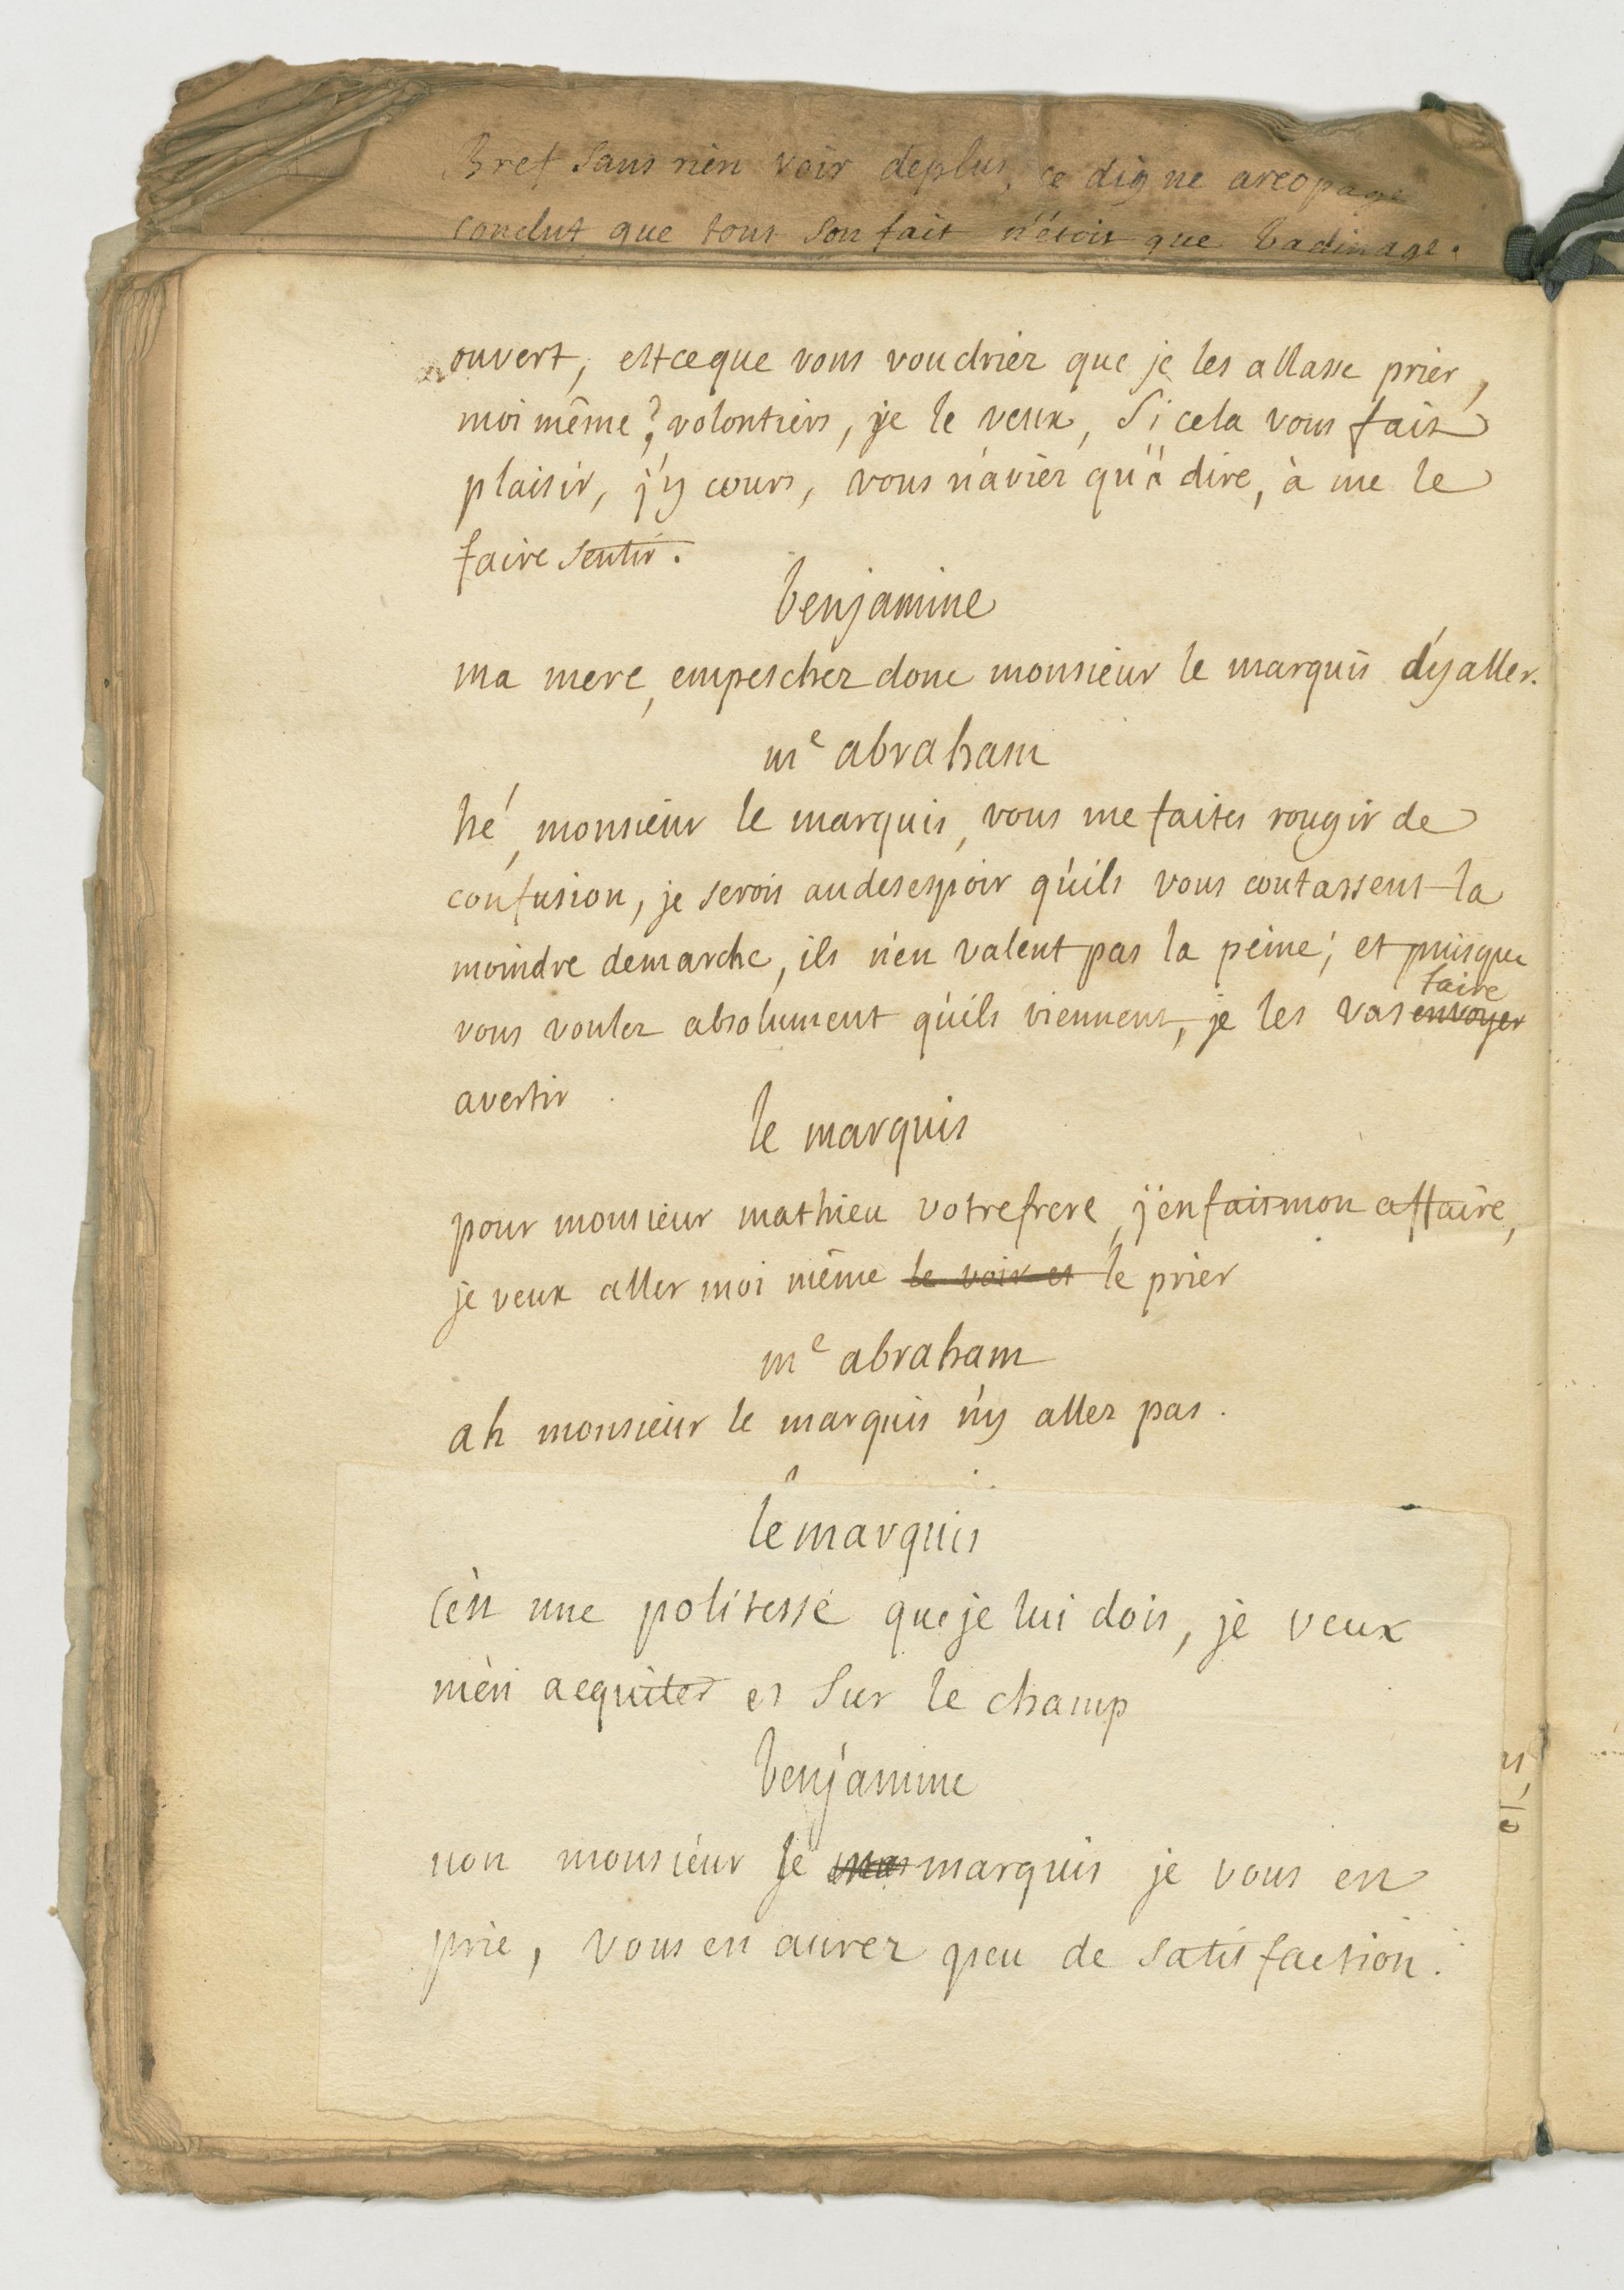 Bref sans rien voir deplus, ce digne areopage
conclut que tout son fait n'étoit que badinage.
ouvert, estceque vous voudriez que je les allasse prier,
moi même? volontiers, je le veux, si cela vous fait
plaisir, j'y cours, vous n'aviez qu'à dire, à me le
faire sentir.
benjamine
ma mere, empeschez donc monsieur le marquis d'y aller.
me abraham
hé, monsieur le marquis, vous me faites rougir de
confusion, je serois audesespoir qu'ils vous coutassent la
moindre demarche, ils n'en valent pas la peine; et puisque
faire
vous voulez absolument qu'ils viennent, je les vas envoyer
avertir
le marquis
pour monsieur mathieu votrefrere, j'en fais mon affaire,
je veux aller moi même le voir et le prier
me abraham
ah monsieur le marquis n'y allez pas.
le marquis
c'est une politesse que je lui dois, je veux
m'en acquiter et sur le champ
benjamine
non monsieur le marquis je vous en
prie, vous en aurez peu de satisfaction.